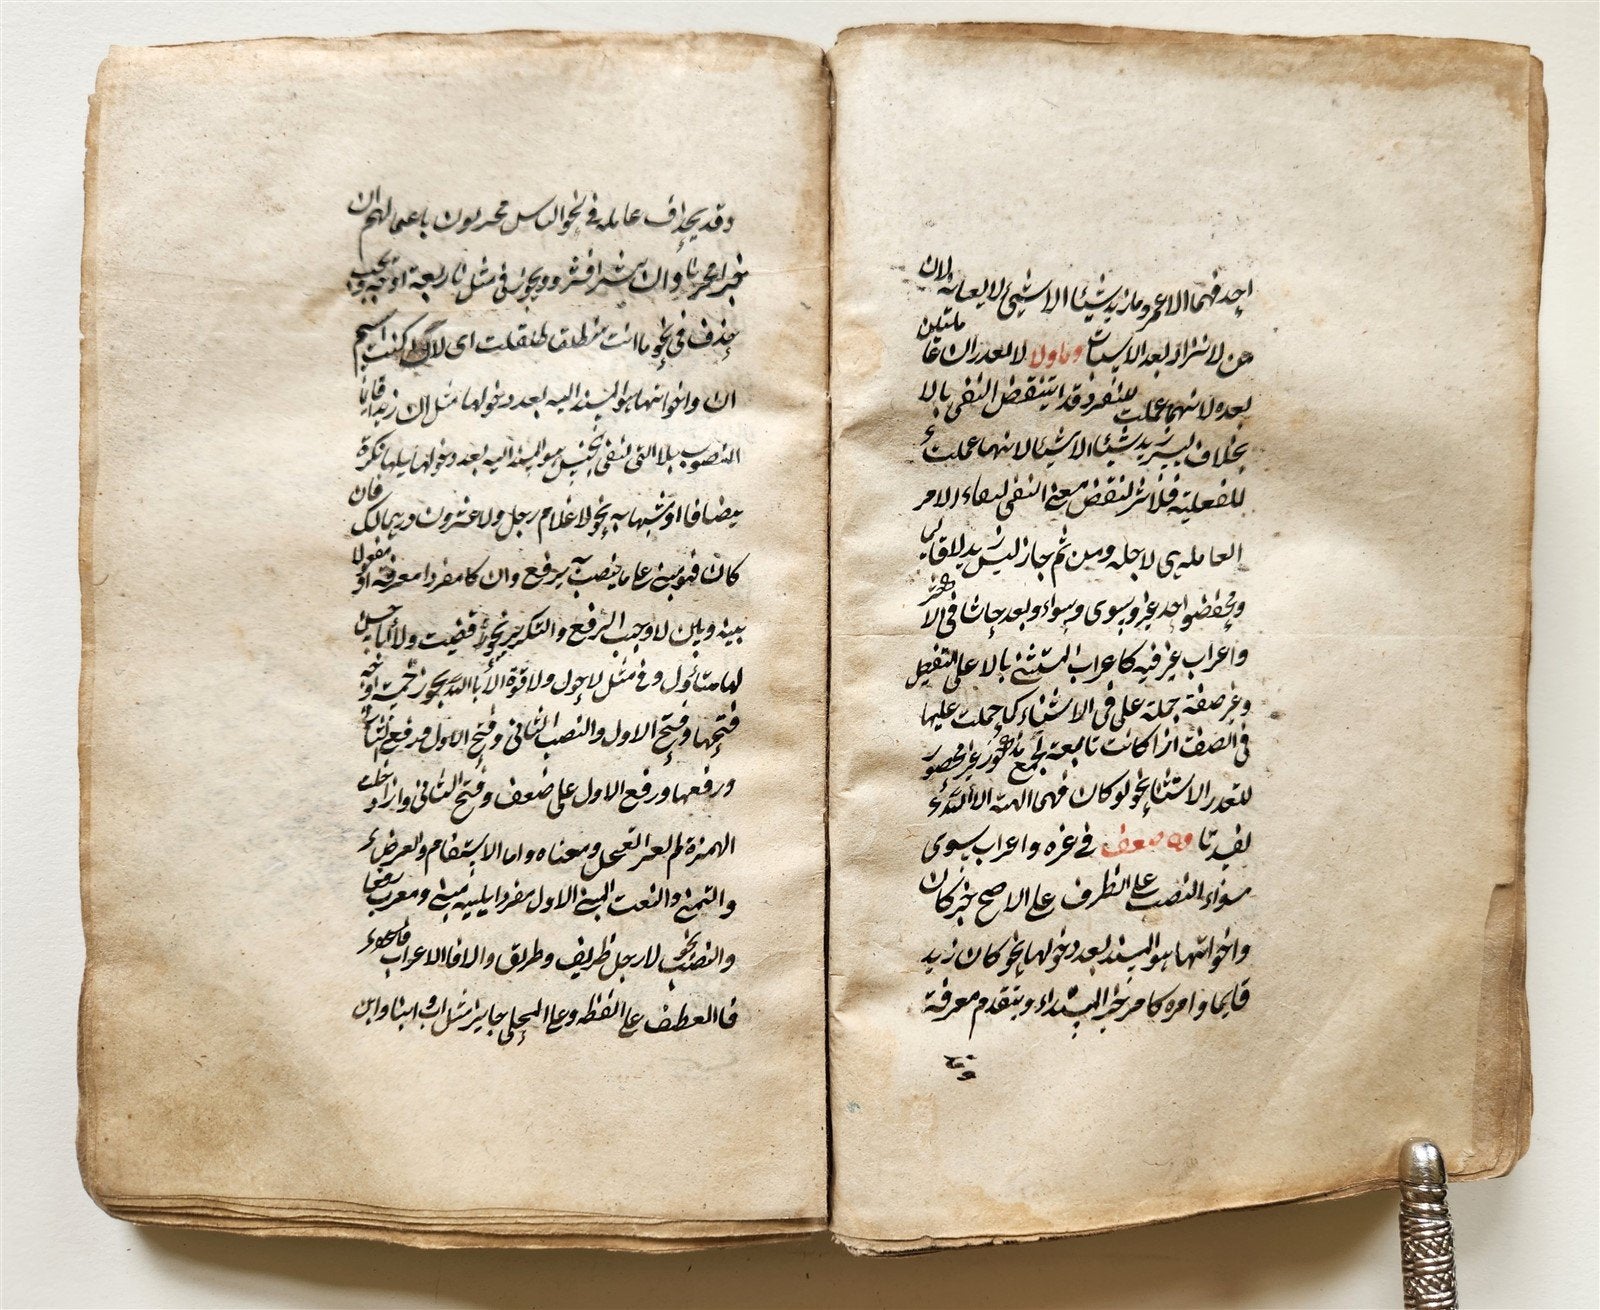 احد فيها الا عمرو وما زيد شيئا الا شئ لا يعبا به لان
من لا تزاد بعد الاثبات وما ولا لا تقدران عاملتين
بعده لانهما عملتا للنفى وقد انتقض النفى بالا
بخلاف ليس زيد شيئا الا شيئا لانها عملت
للفعلية فلا اثر لنقض معنى النفى لبقاء الامر
العاملة هى لاجله ومن ثم جاز ليس زيد الا قائما
ومخفوض بعد غير وسوى وسواء وبعد حاشا فى الاكثر
واعراب غير فيه كاعراب المستثنى بالا على التفصيل
وغير صفة حملت على الا فى الاستثناء كما حملت عليها
فى الصفة اذا كانت تابعة لجمع منكور غير محصور
لتعذر الاستثناء نحو لو كان فيهما الهة الا الله
لفسدتا وضعف فى غيره واعراب سوى
سواء النصب على الظرف على الاصح خبر كان
واخواتها هو المسند بعد دخولها نحو كان زيد
قايما وامره كامر خبر المبتداء ويتقدم معرفة
وقد
وقد يحذف عامله فى نحو الناس مجزيون باعمالهم ان
خيرا فخير وان شرا فشر ويجوز فى مثلها اربعة اوجه ويجب
حذف فى نحو اما انت منطلقا انطلقت اى لان كنت اسم
ان واخواتها هو المسند اليه بعد دخولها مثل ان زيدا قائم
المنصوب بلا التى لنفى الجنس هو المسند اليه بعد دخولها يليها نكرة
مضافا او مشبها به نحو لا غلام رجل ولا عشرون درهما لك فان
كان مفردا فهو مبنى على ما ينصب به وان كان معرفة او مفصولا
بينه وبين لا وجب الرفع والتكرير نحو قضية ولا ابا حسن
لها متأول وفى مثل لا حول ولا قوة الا بالله يجوز خمسة اوجه
فتحهما وفتح الاول والنصب الثانى وفتح الاول ورفع الثانى
ورفعهما ورفع الاول على ضعف وفتح الثانى واذا دخلت
الهمزة لم يغير العمل ومعناه واما الاستفهام والعرض
والتمنى والنعت المبنى الاول مفردا يليه مبنى ومعرب رفعا
والنصب نحو لا رجل ظريف وظريف والا فالاعراب
فا العطف على اللفظ وعلى المحل جايز مثل لا اب وابنا وابن